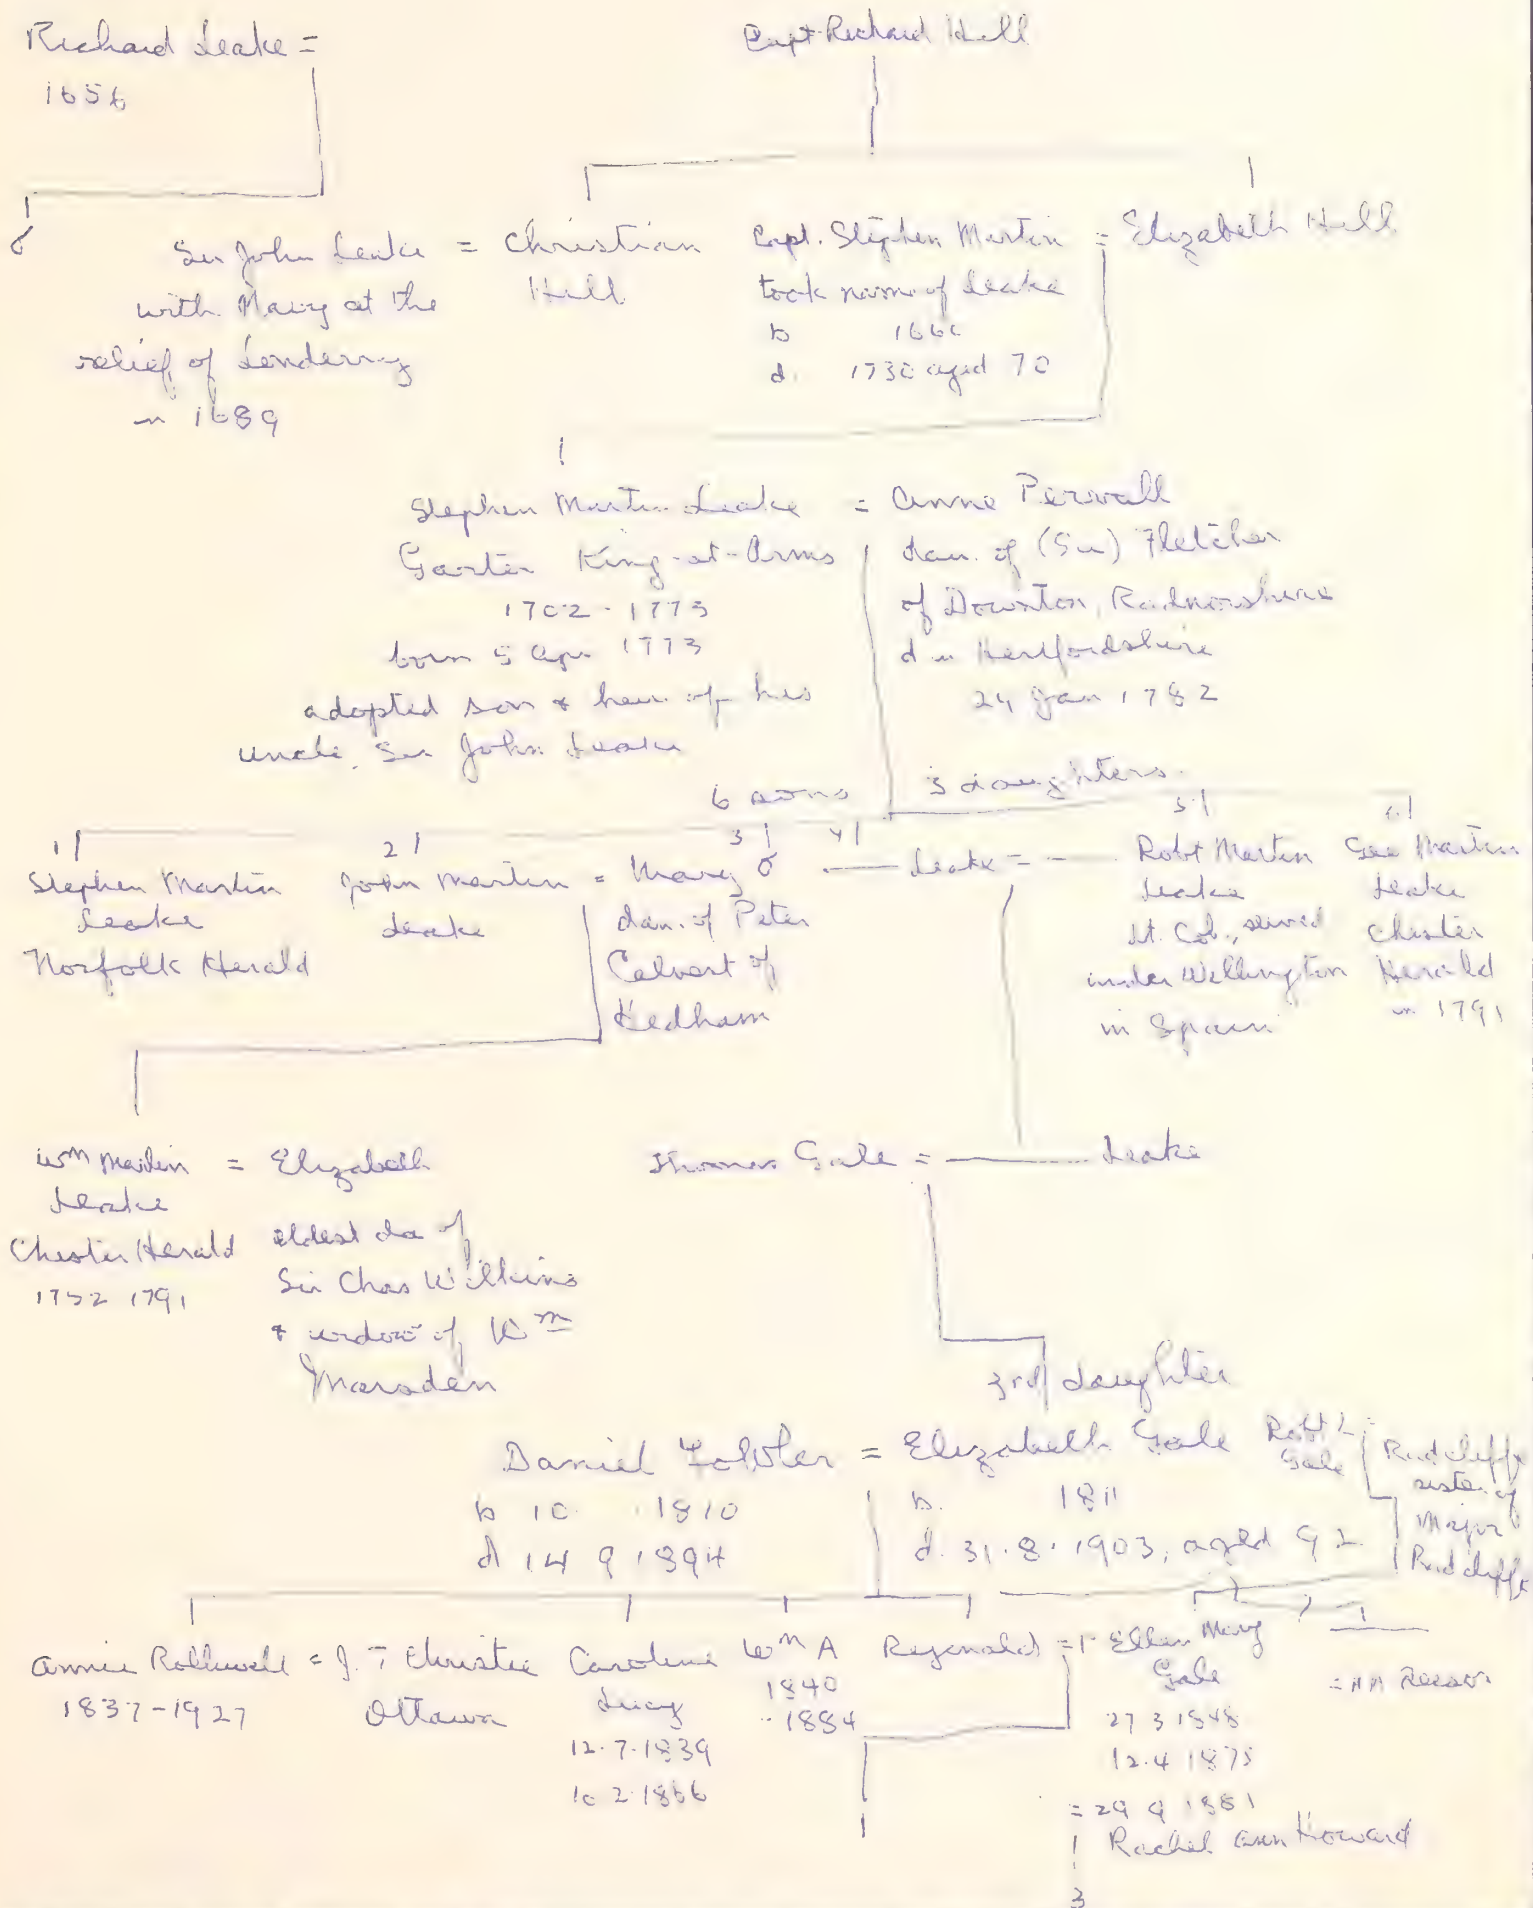 Richard Leake =
1656
Capt Richard Hill
Sir John Leake = Christian Hill
with Navy at the
relief of Londerry
in 1689
Capt. Stephen Martin = Elizabeth Hill
took name of Leake
b 1666
d. 1736 aged 70
Stephen Martin Leake = Anne Pervall
Garter King-at-Arms
1702-1773
born 5 Apr 1773
adopted son & heir of his
uncle, Sir John Leake
dau. of (Sir) Fletcher
of Downton, Radnorshire
d in Hertfordshire
24 Jan 1782
6 sons 3 daughters.
1
Stephen Martin
Leake
Norfolk Herald
2
John Martin = Mary
Leake
dau. of Peter
Calvert of
Hedham
3
4
— Leake = —
5
Robt Martin
Leake
Lt. Col., served
under Wellington
in Spain
6
Geo Martin
Leake
Chester
Herald
in 1791
Wm Martin = Elizabeth
Leake
Chester Herald
1752 1791
eldest da of
Sir Chas Wilkins
& widow of Wm
Marsden
Thomas Gale = — Leake
3rd daughter
Daniel Fowler = Elizabeth Gale
b 10 1810
d 14 9 1894
b. 1811
d. 31.8.1903, aged 92
Robt L =
Gale
Radcliffe
sister of
Major
Radcliffe
Annie Rothwell = J. T Christie
1837-1927
Ottawa
Caroline
Lucy
12.7.1839
10 2.1866
Wm A
1840
-1884
Reginald = 1 Ellen Mary
Gale
27 3 1848
12.4 1875
= 29 9 1881
Rachel Ann Howard
3